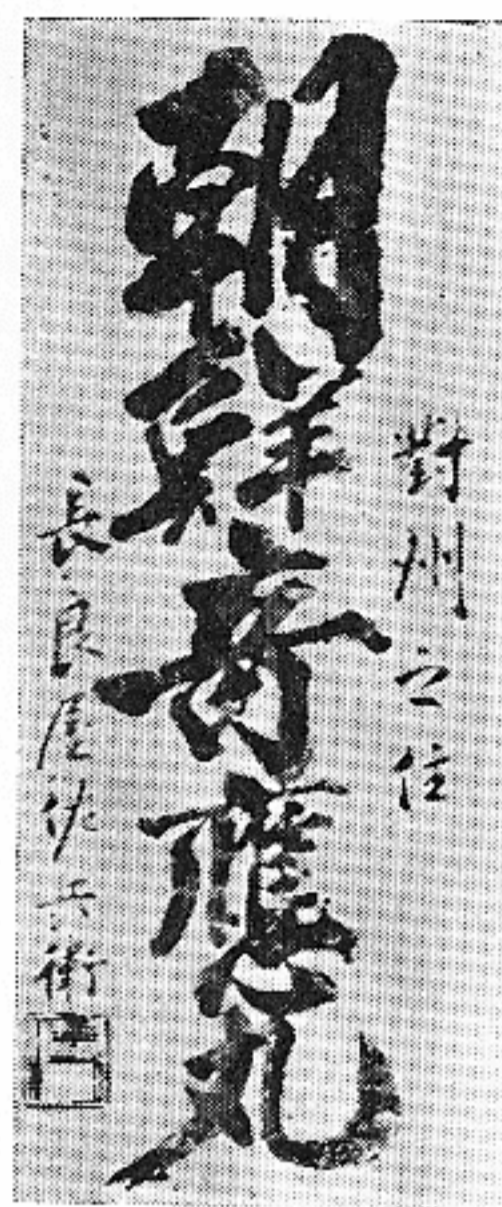 對州之住
朝鮮奇應丸
長良屋兵衛